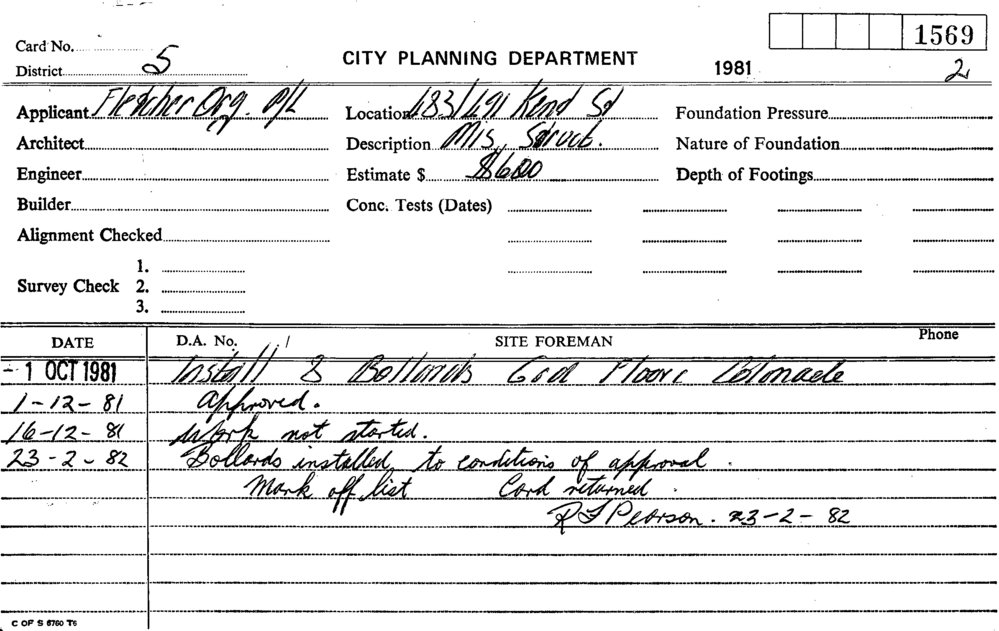 1569
Card No.
District 5
CITY PLANNING DEPARTMENT
1981 2
Applicant Fletcher Org. P/L
Location 483/491 Kent St
Foundation Pressure
Architect
Description Mis. Struct.
Nature of Foundation
Engineer
Estimate $ $600
Depth of Footings
Builder
Conc. Tests (Dates)
Alignment Checked
Survey Check 1.
2.
3.
DATE D.A. No. SITE FOREMAN Phone
- 1 OCT 1981 Install 8 Bollards Grd Floor Colonade
1-12-81 approved.
16-12-81 Work not started.
23-2-82 Bollards installed to conditions of approval.
Mark off list Card returned.
R J Pearson. 23-2-82
C OF S 6760 T6